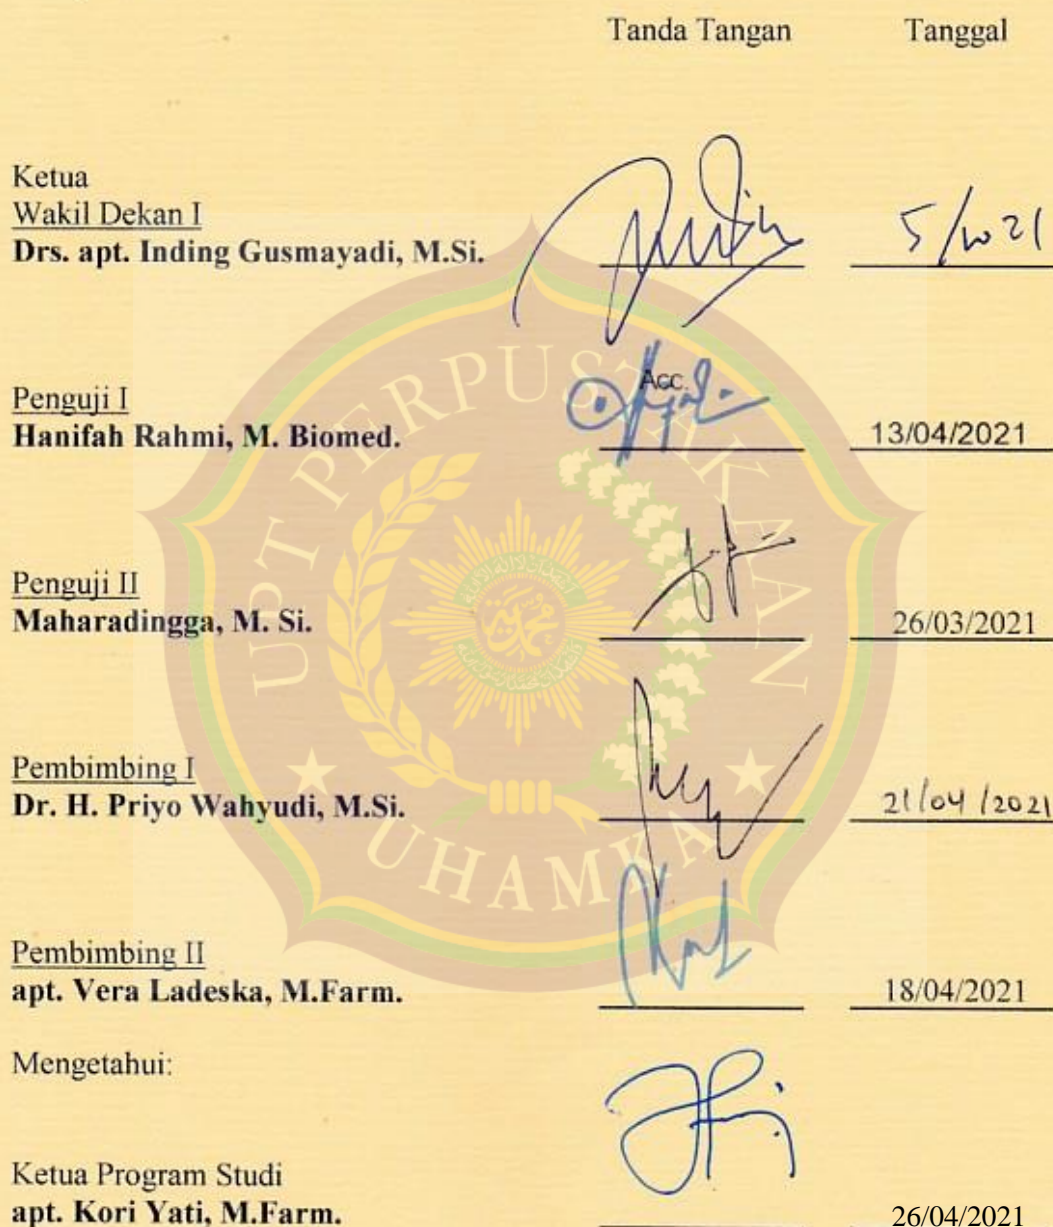 Tanda Tangan Tanggal
Ketua
Wakil Dekan I
Drs. apt. Inding Gusmayadi, M.Si.
5/10 21
Penguji I
Acc.
Hanifah Rahmi, M. Biomed. 13/04/2021
Penguji II
Maharadingga, M. Si. 26/03/2021
Pembimbing I
Dr. H. Priyo Wahyudi, M.Si. 21/04/2021
Pembimbing II
apt. Vera Ladeska, M.Farm. 18/04/2021
Mengetahui:
Ketua Program Studi
apt. Kori Yati, M.Farm. 26/04/2021
UPT PERPUSTAKAAN
UHAMKA